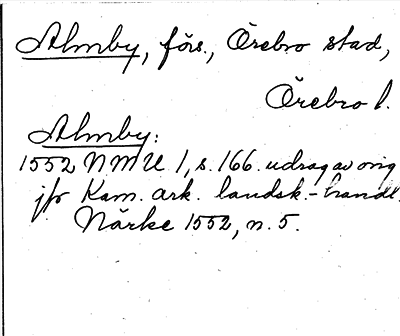 Almby, förs., Örebro stad,
Örebro l.
Almby:
1552 NMU 1, s. 166. udrag av orig
jfr Kam. ark. landsk.-handl.
Närke 1552, n. 5.